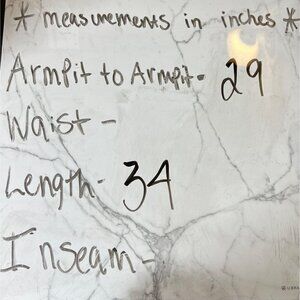 * measurements in inches *
Armpit to Armpit- 29
Waist -
Length- 34
Inseam -